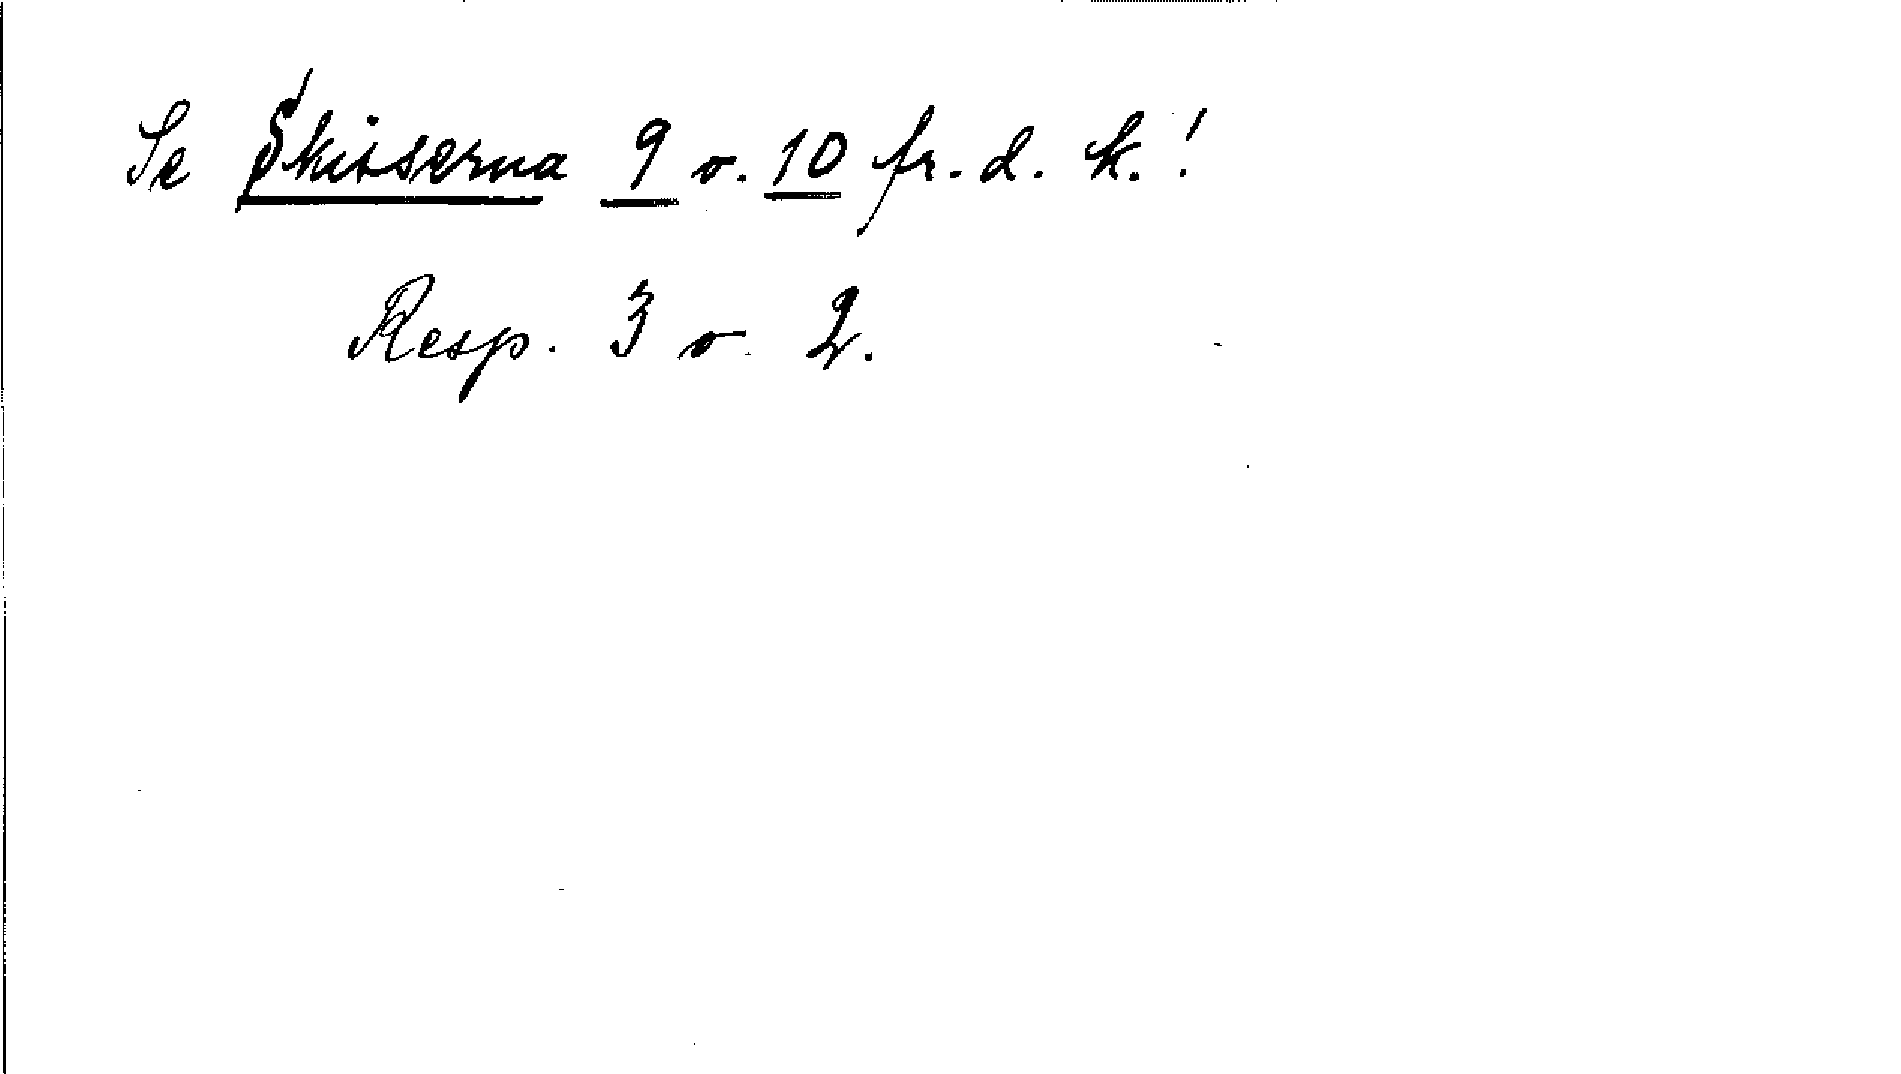 Se Skisserna 9 o. 10 fr. d. k.!
Resp. 3 o. 2.